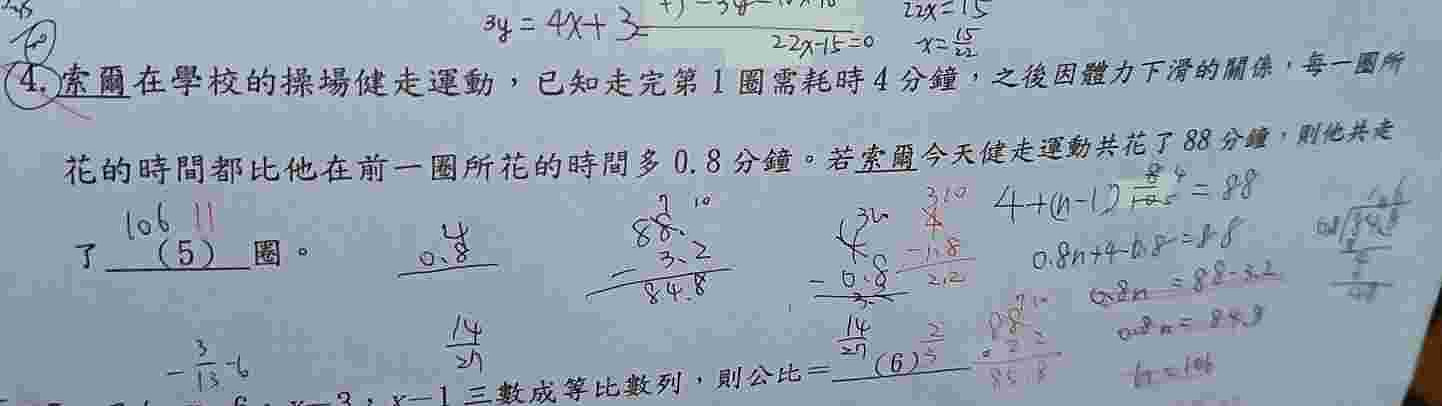 3y = 4x + 3
22x-15=0
22x=15
x=15/22
4. 索爾在學校的操場健走運動，已知走完第 1 圈需耗時 4 分鐘，之後因體力下滑的關係，每一圈所
花的時間都比他在前一圈所花的時間多 0.8 分鐘。若索爾今天健走運動共花了 88 分鐘，則他共走
106 11
了 (5) 圈。
4
0.8
7 10
88.
- 3.2
84.8
- 0.8
3 10
4
-1.8
2.2
4+(n-1) = 88
0.8n = 88-3.2
0.8n = 84.8
n=106
-3/13 -6
14/27
14/27
2/3
x-3，x-1 三數成等比數列，則公比= (6)